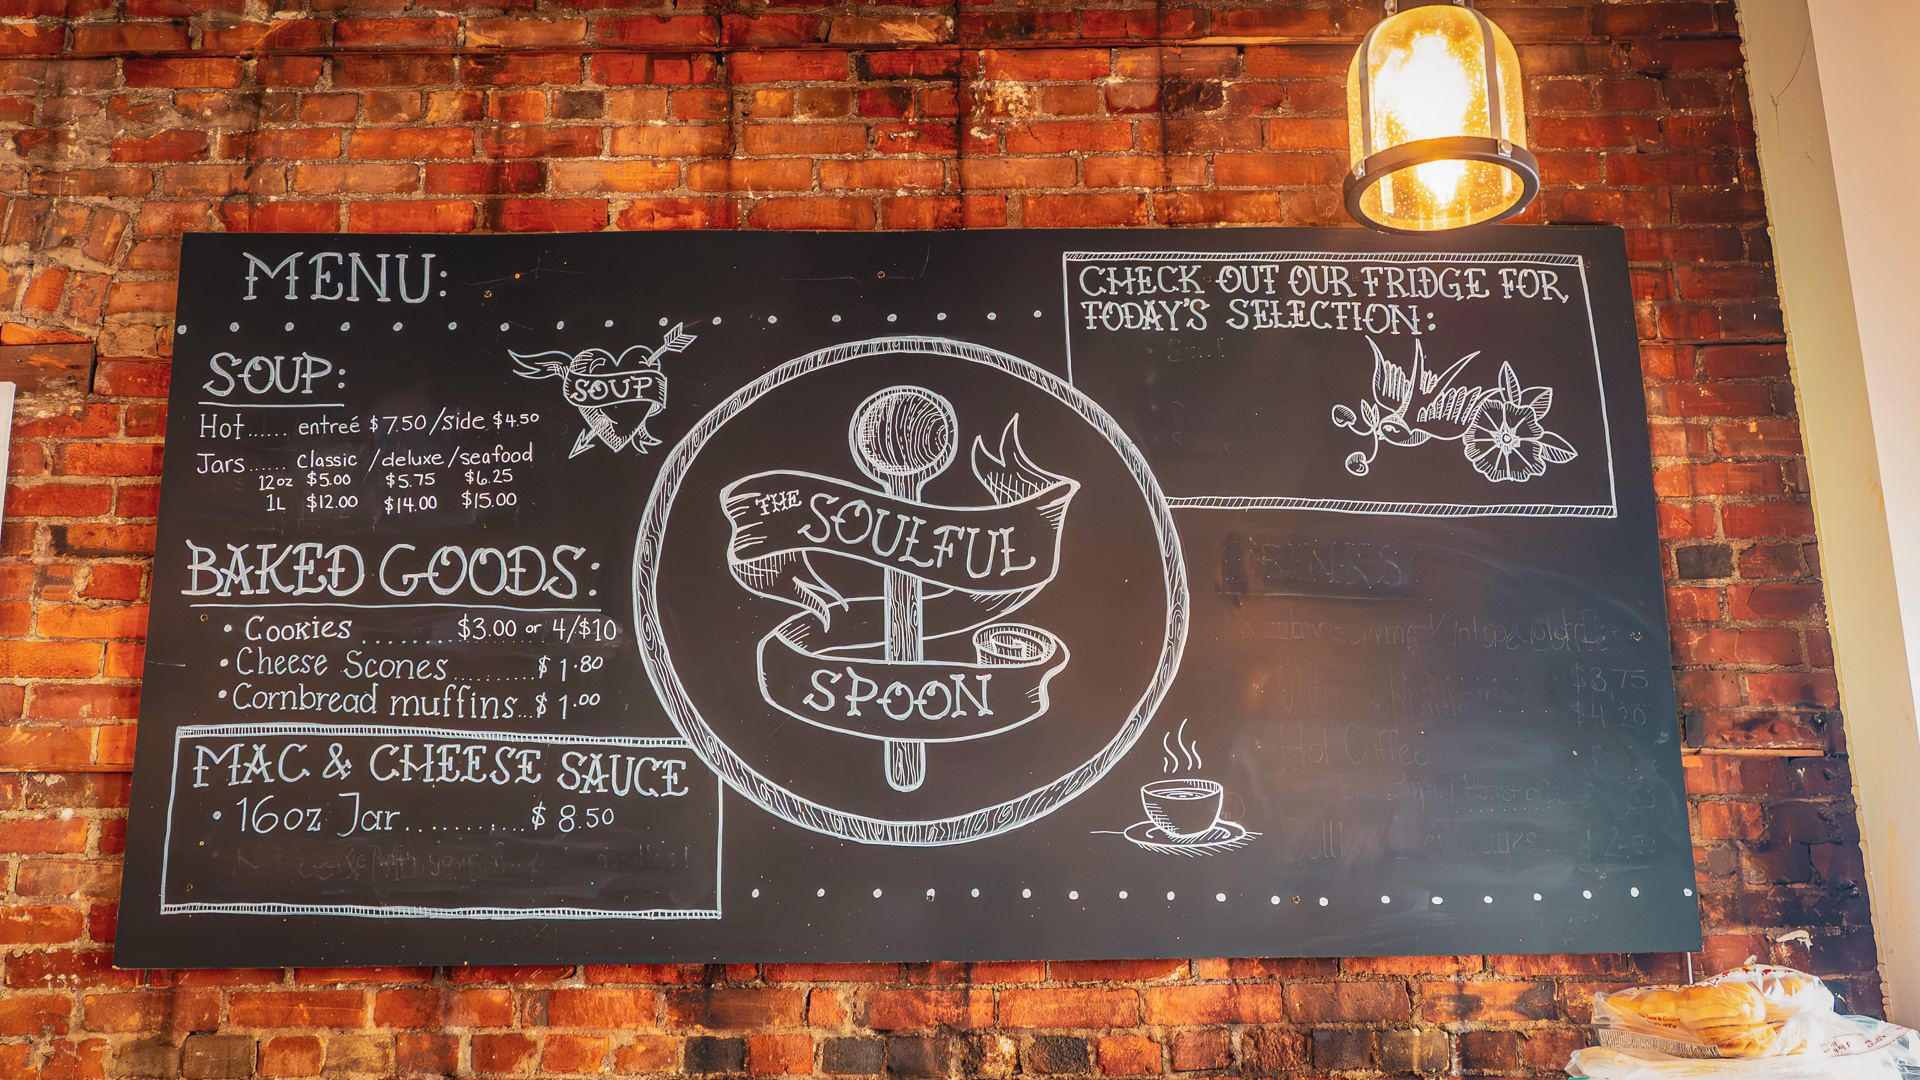 MENU:
SOUP:
SOUP
Hot...... entreé $7.50/side $4.50
Jars...... Classic /deluxe/seafood
12oz $5.00 $5.75 $6.25
1L $12.00 $14.00 $15.00
BAKED GOODS:
• Cookies ........ $3.00 or 4/$10
• Cheese Scones.......... $1.80
• Cornbread muffins... $1.00
MAC & CHEESE SAUCE
• 16oz Jar............ $8.50
THE SOULFUL
SPOON
CHECK OUT OUR FRIDGE FOR
TODAY'S SELECTION:
$3.75
Hot Coffee